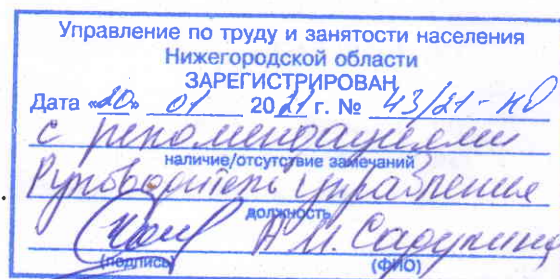 Управление по труду и занятости населения
Нижегородской области
ЗАРЕГИСТРИРОВАН
Дата «20» 01 2021 г. № 43/21-КД
с рекомендациями
наличие/отсутствие замечаний
Руководитель управления
должность
А.И.
(подпись) (ФИО)